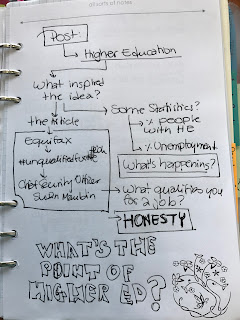 all sorts of notes
Post:
Higher Education
What inspired
the idea?
the Article
Some Statistics?
% people
with HE
% Unemployment
Equifax
#unqualifiedfor
Chief Security Officer
Susan Mauldin
What's happening?
What qualifies you
for a job?
HONESTY
WHAT'S THE
POINT OF
HIGHER ED?